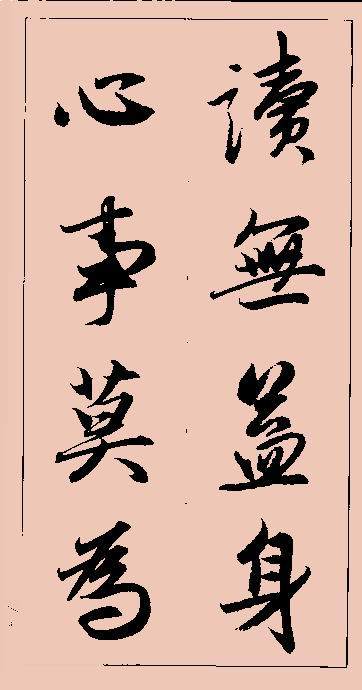 讀無益身
心事莫為